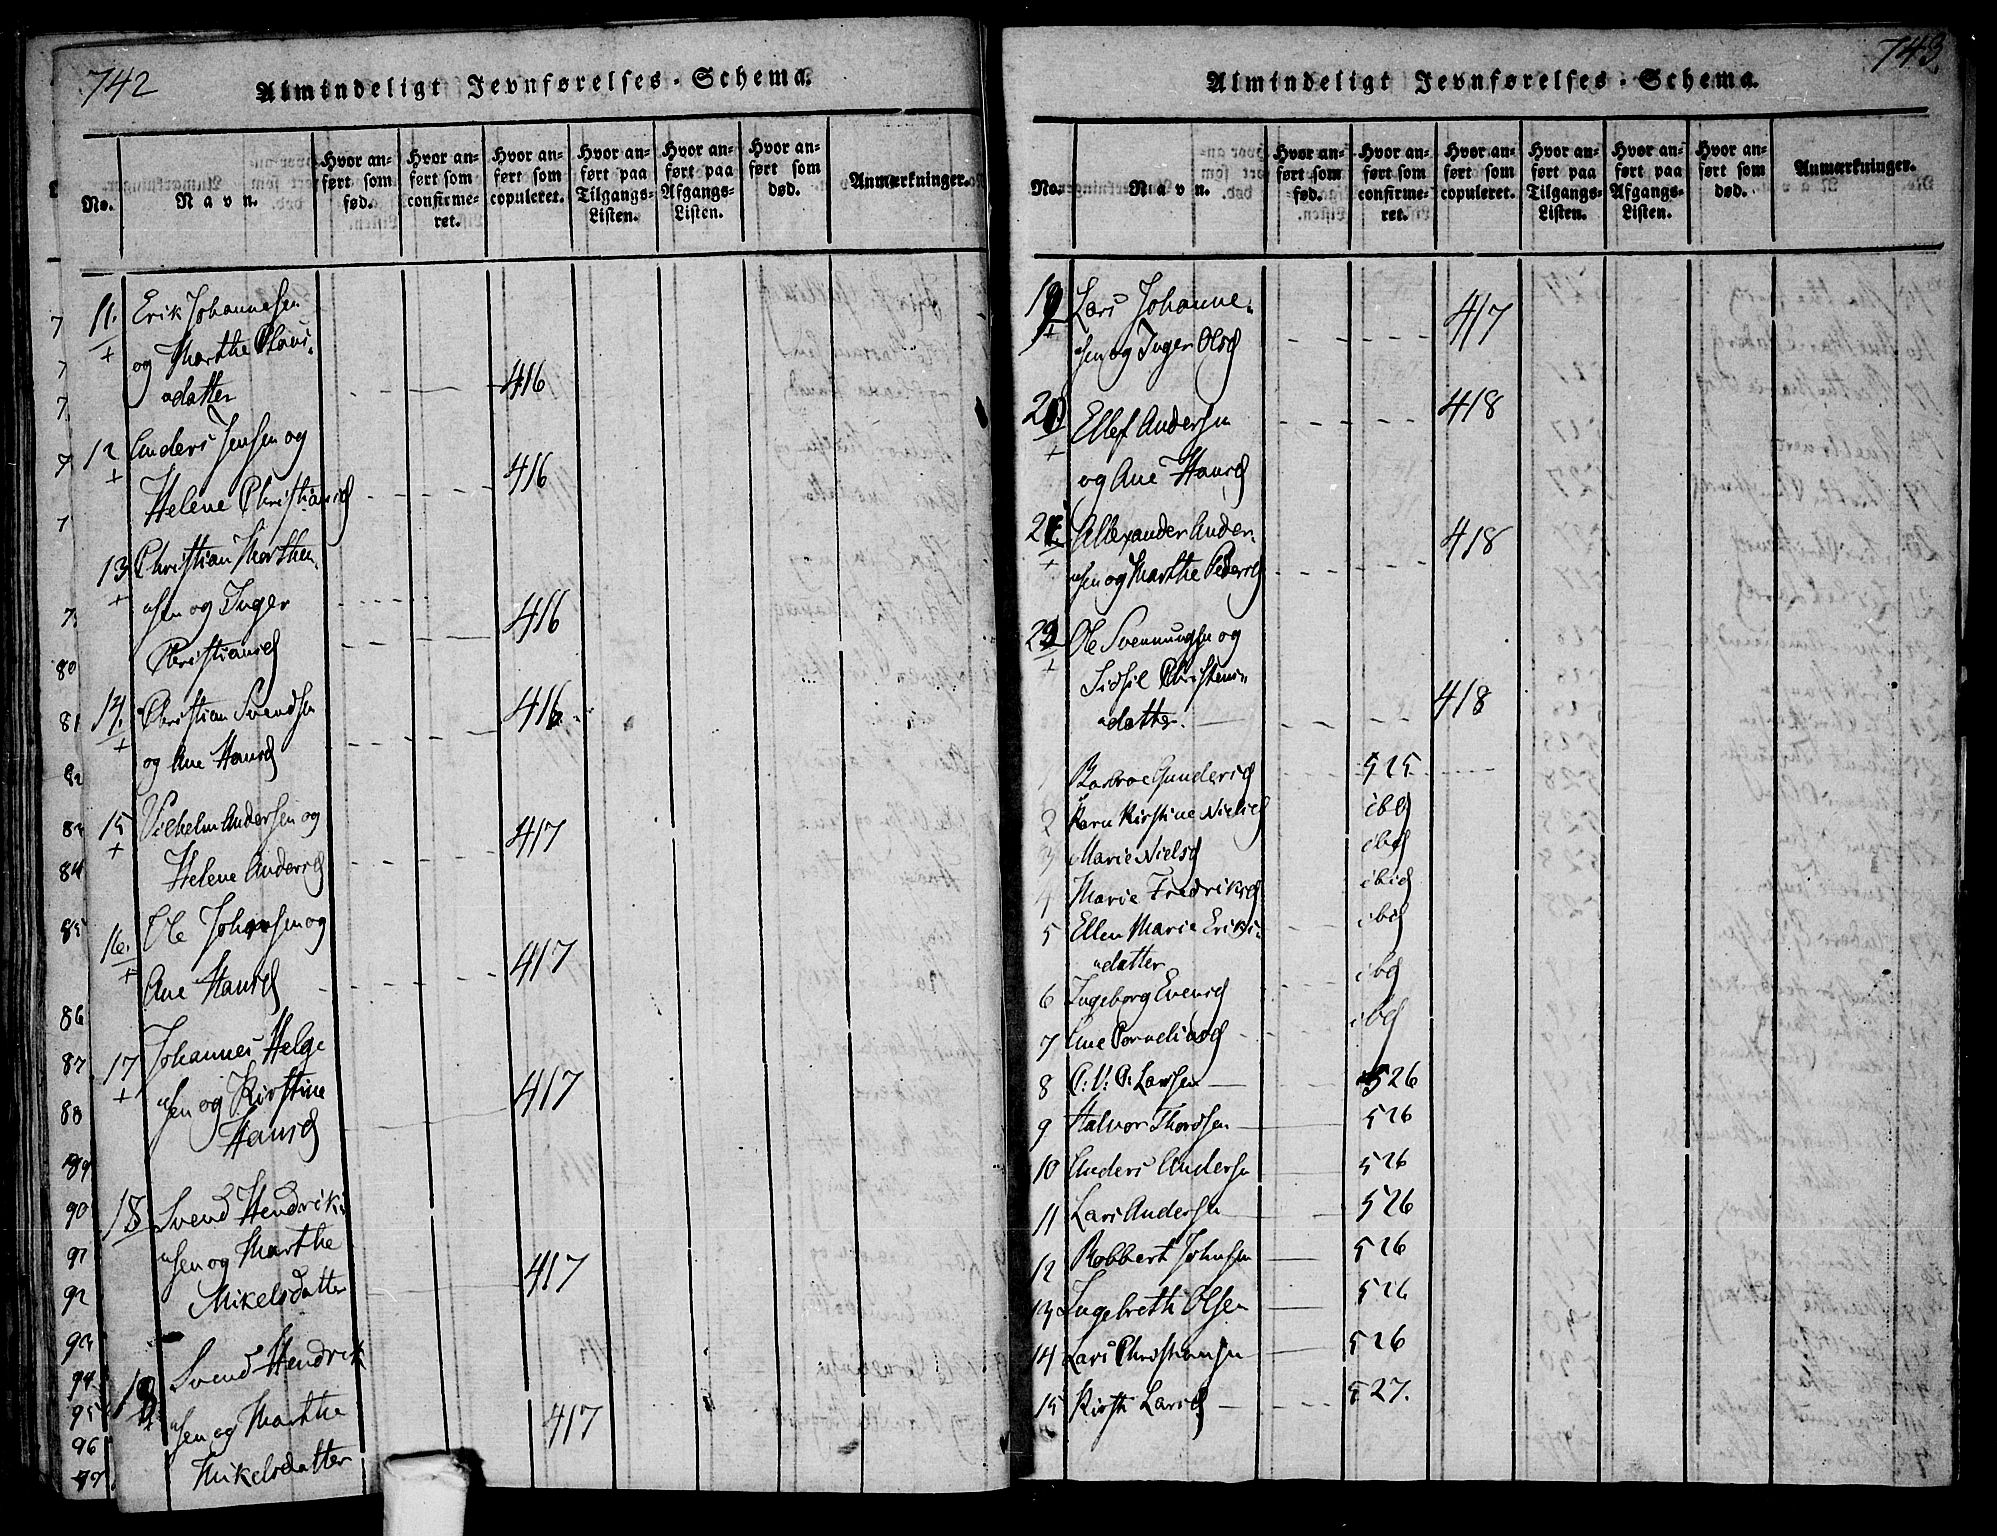 742
Almindeligt Jevnførelses-Schema.
No.
Navn.
Hvor anført som fød.
Hvor anført som confirmeret.
Hvor anført som copuleret.
Hvor anført paa Tilgangs-Listen.
Hvor anført paa Afgangs-Listen.
Hvor anført som død.
Anmærkninger.
11. Erik Johannesen
og Marthe Claus
datter 416
12 Anders Jensen og
Helene Christiansd 416
13 Christian Morthen
sen og Inger
Christiansd 416
14. Christian Svendsen 416
og Ane Hansd
15 Vilhelm Andersen og
Helene Andersd 417
16. Ole Johansen og
Ane Hansd 417
17 Johannes Helge
sen og Kirstine
Hansd 417
18 Svend Hendrik
sen og Marthe
Mikelsdatter 417
18 Svend Hendrik
sen og Marthe 417
Mikelsdatter
743
Almindeligt Jevnførelses-Schema.
No.
Navn.
Hvor anført som fød.
Hvor anført som confirmeret.
Hvor anført som copuleret.
Hvor anført paa Tilgangs-Listen.
Hvor anført paa Afgangs-Listen.
Hvor anført som død.
Anmærkninger.
19 Lars Johanne
sen og Inger Olsd 417
20 Ellef Andersen 418
og Ane Hansd
21 Allexander Ander
sen og Marthe Pedersd 418
Ole Svennungsen og
Sidsil Christens
datter. 418
Barbroe Gundersd 525
2 Karn Kirstine Nielsd ibd
3 Marie Nielsd ibd
4 Marie Fredriksd ibid
5 Ellen Marie Eriks ibd
datter
6 Ingeborg Evensd ibd
7 Ane Corneliusd ibd
8 C: V: P: Larsen 526
9 Halvor Thordsen 526
10 Anders Andersen 526
11 Lars Andersen 526
12 Robbert Johnsen 526
13 Ingebreth Olsen 526
14 Lars Christiansen 526
15 Kirsti Larsd 527.